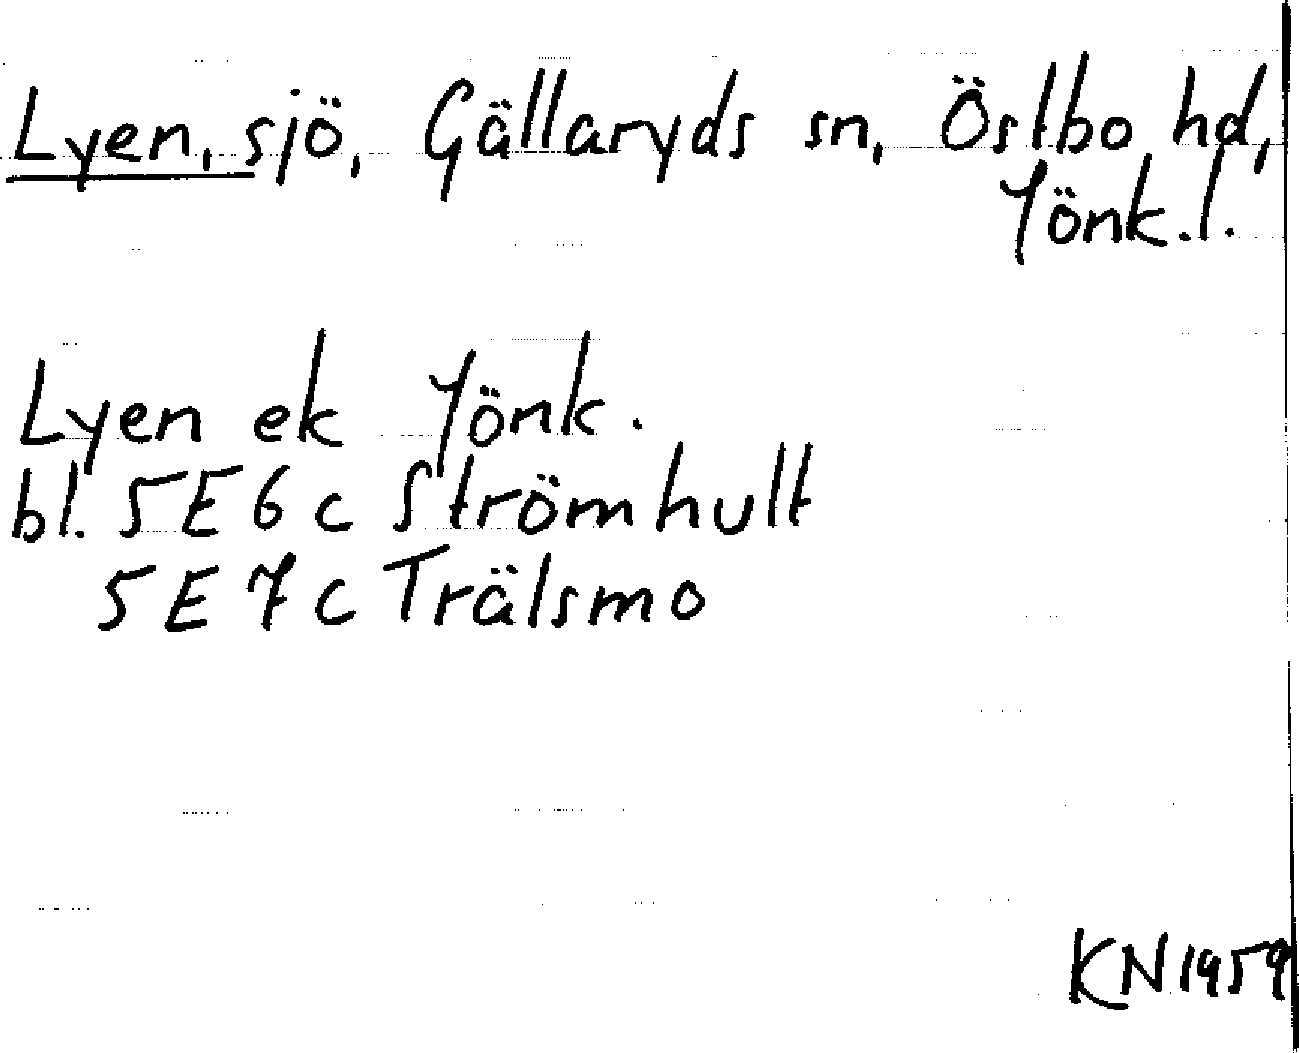 Lyen, sjö, Gällaryds sn, Östbo hd,
Jönk.l.
Lyen ek Jönk.
bl. 5E6c Strömhult
5E7c Trälsmo
KN1959